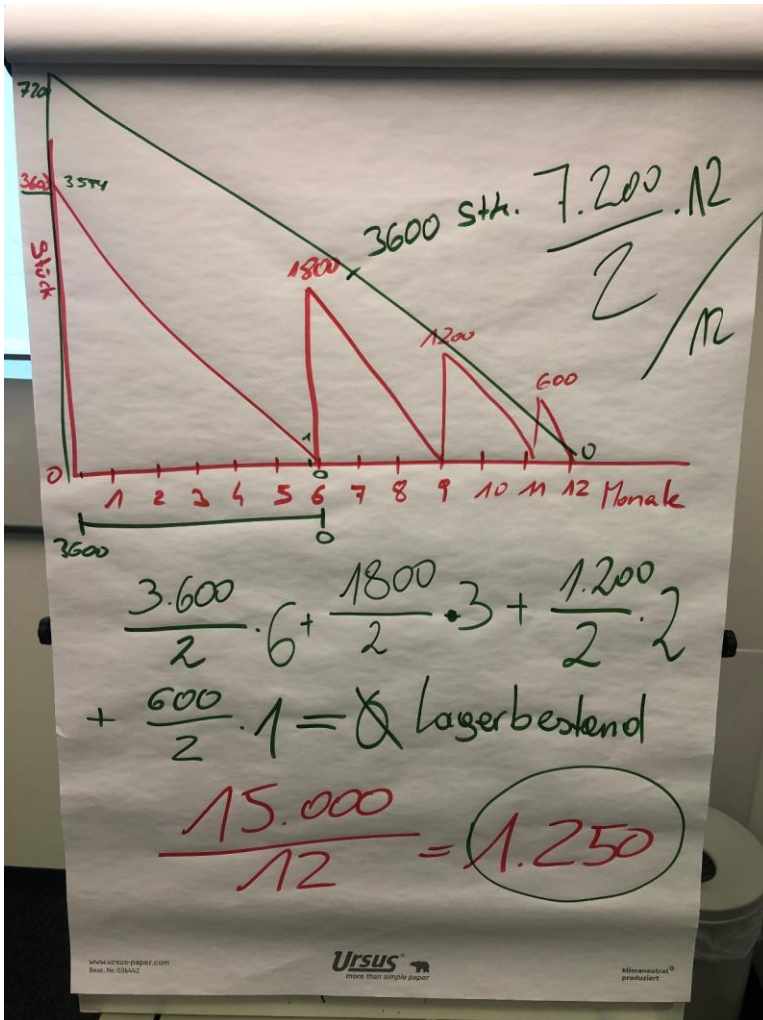 720
3600 3594
Stück
3600 Stk. 7.200/2 · 12
/ 12
1800
1200
600
1
0
0
0 1 2 3 4 5 6 7 8 9 10 11 12 Monate
3600 0
3.600/2 · 6 + 1800/2 · 3 + 1.200/2 · 2
+ 600/2 · 1 = Ø Lagerbestand
15.000/12 = 1.250
www.ursus-paper.com
Best. Nr. 036442
Ursus®
more than simple paper
klimaneutral
produziert